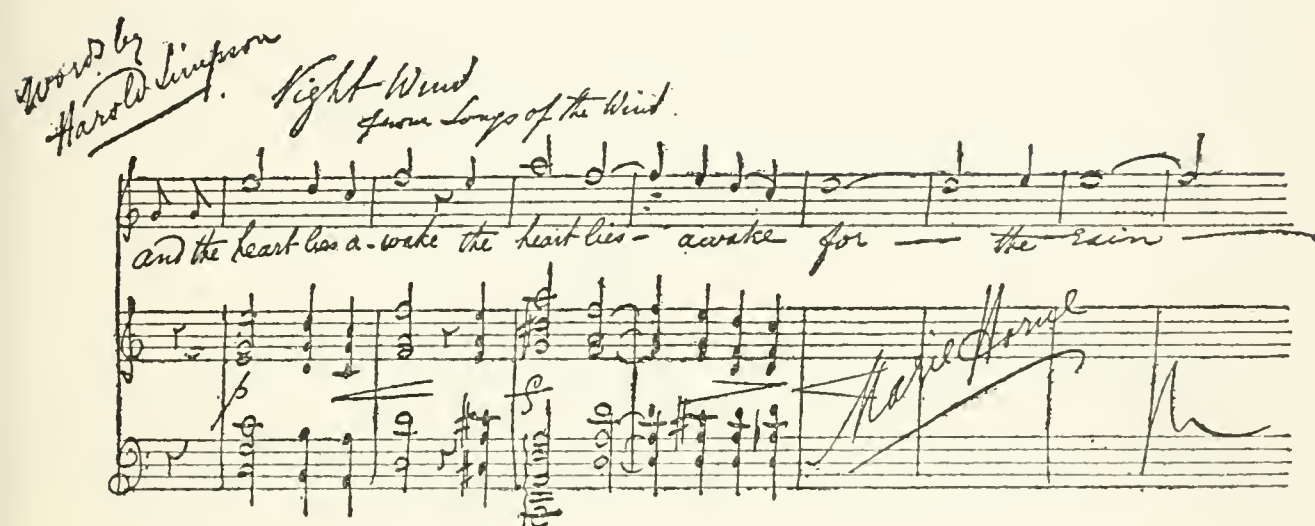 Words by
Harold Simpson
Night Wind
from Songs of the Wind.
and the heart lies a-wake the heart lies - awake for — the rain —
p
f